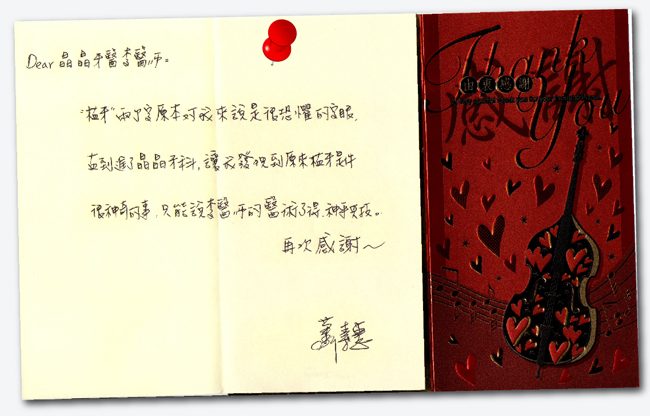 Dear 晶晶牙醫李醫師。
"植牙"兩個字原本對我來說是很恐懼的字眼,
直到進了晶晶牙科,讓我發現到原來植牙是件
很神奇的事,只能說李醫師的醫術了得,神乎其技。
再次感謝~
Thank You
感謝
由衷感謝